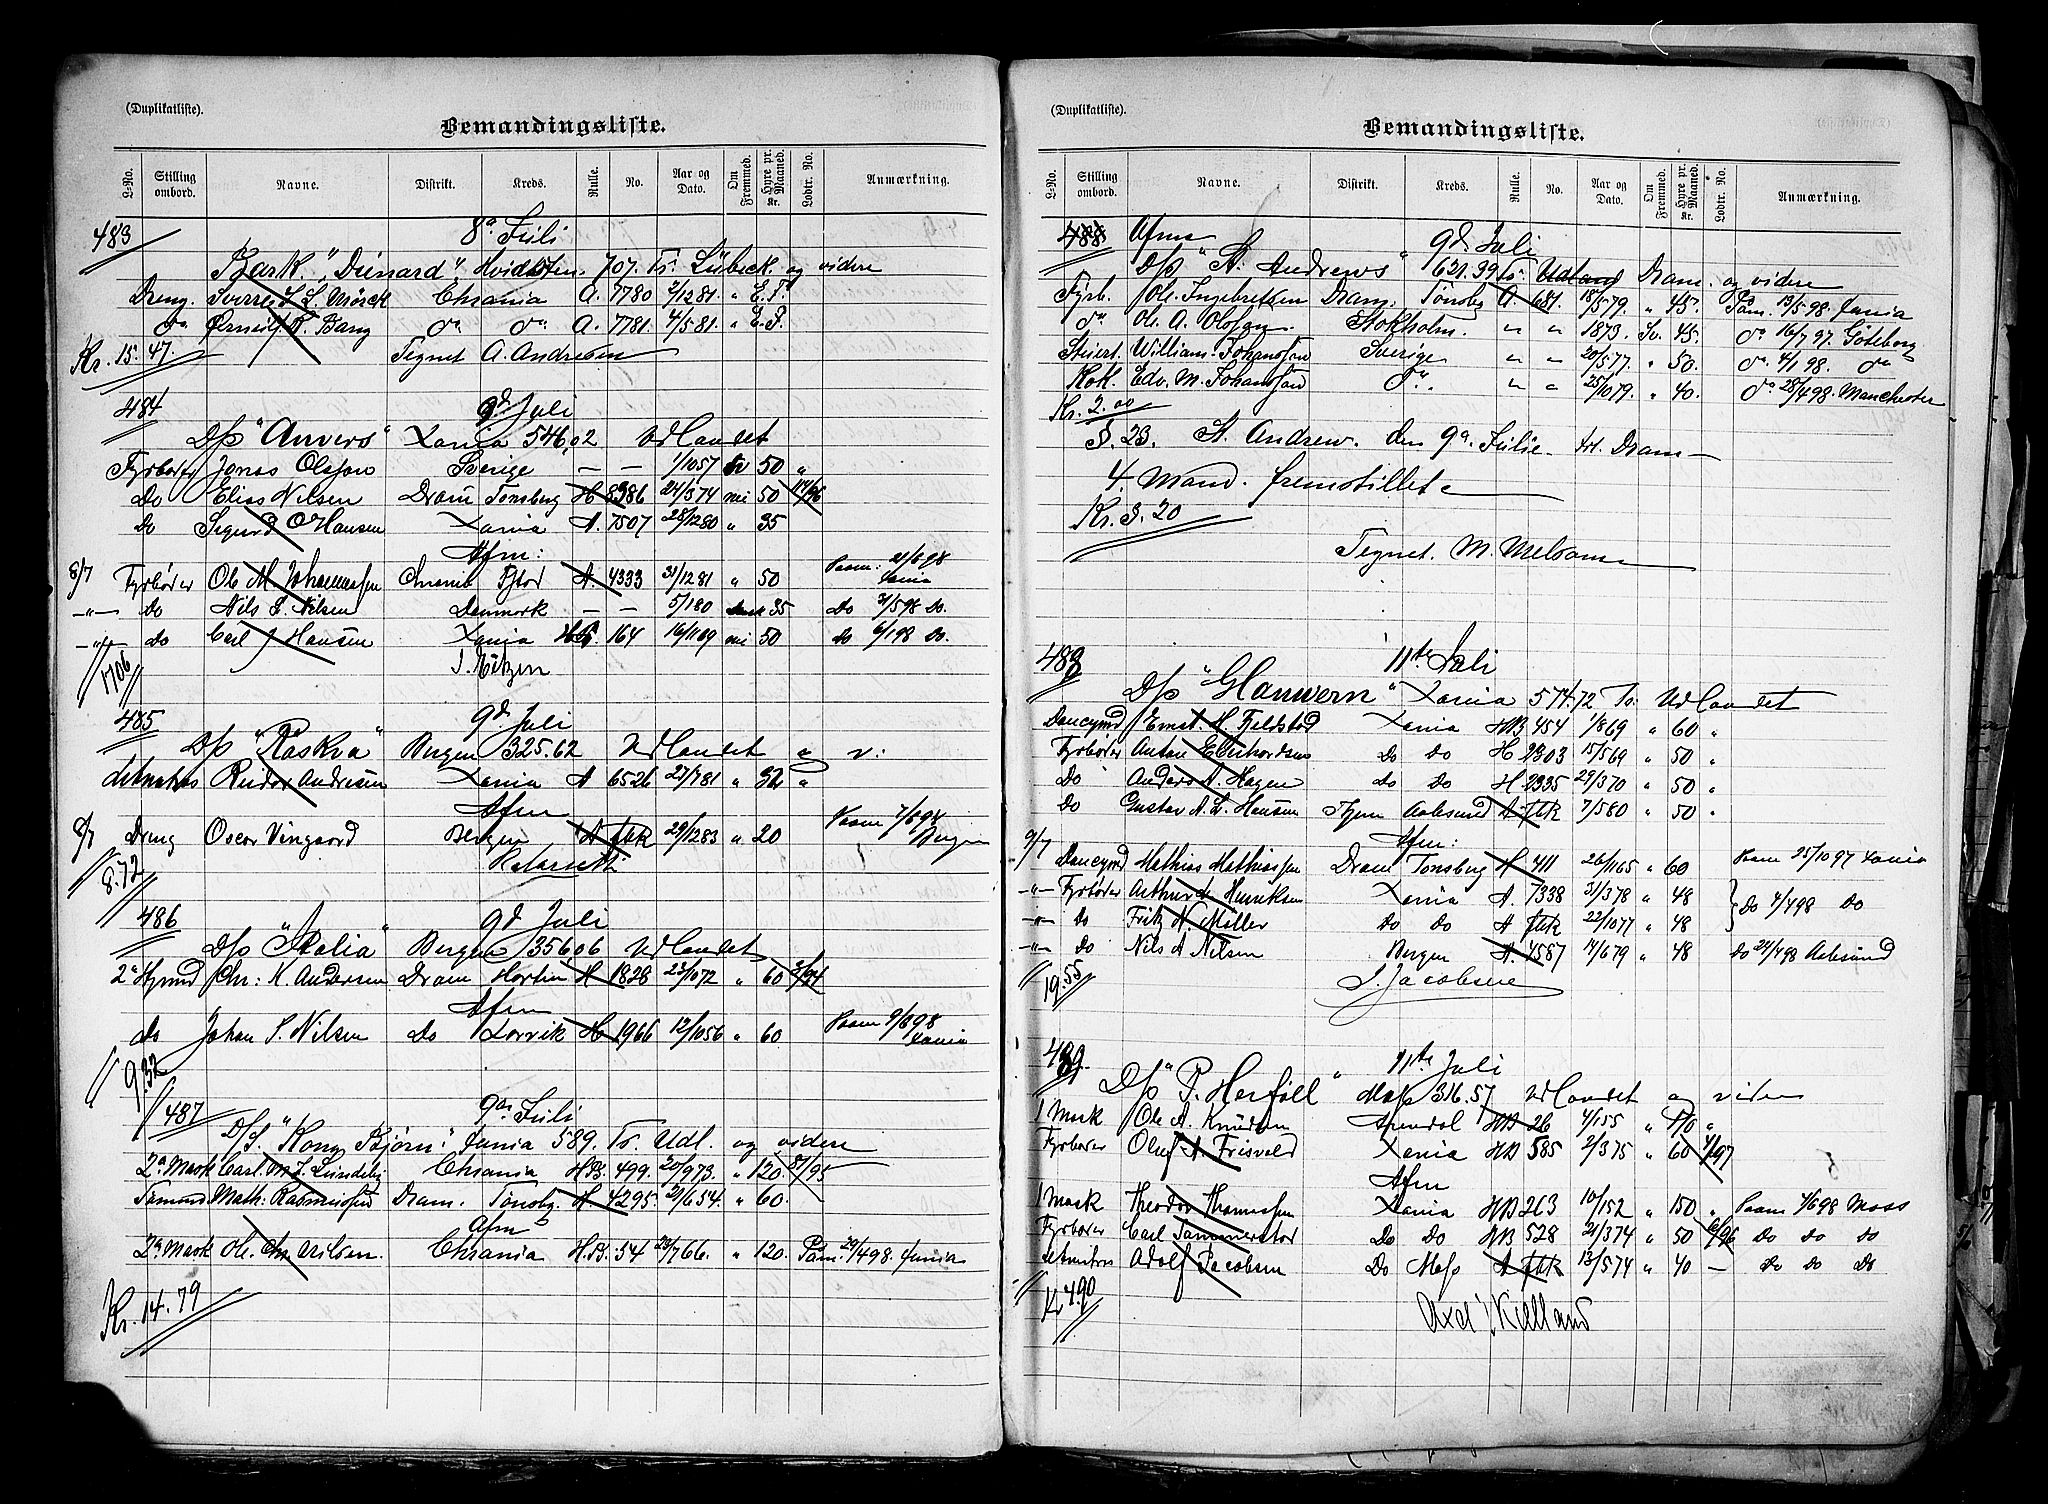 (Duplikatliste).
Bemandingsliste.
L-No. Stilling ombord. Navne. Distrikt. Kreds. Rulle. No. Aar og Dato. Om Fremmed. Hyre pr. Maaned. Kr. Lodtr. No. Anmærkning.
483 8de Juli
Bark. "Dünard". Hvidsten. 707. Ts. Lübeck. og videre
Dreng. Sverre L. Mörck Chrania A. 7780 2/12 81. " E.P.
do Ørnulf R. Bang do do A. 7781. 4/5 81. " E.P.
Kr. 15.47. Tegnet A. Andresen
484 9d Juli
D/s "Anvers" Xania 546,02 Udlandet
Fyrbøter Jonas Olsson Sverige — — 1/10 57 Sv 50 "
Do Elias Nilsen Dram Tonsberg H 8986 24/3 74 nei 50 114/96
Do Sigurd O Hansen Xania A. 7507 28/12 80 " 35
Afm:
8/7 Fyrbøter Ole M Johannessen Chrania Fstad A. 4333 31/12 81 " 50 Paam: 21/6 98 Xania
—"— do Nils S. Nilsen Danmark — — 5/1 80 Dansk 35 Do 31/5 98 Do.
—"— do Carl J Hansen Xania HB. 164 16/11 69 nei 50 do 6/1 98 Do.
1706
485 9d. Juli
D/s "Råskva" Bergen 325.62 Udlandet o v:
Letmatros Reidar Andresen Xania A 6526 27/7 81 " 36 "
Afm
8/7 Dreng Oscar Vingaard Bergen A fbk 29/12 83 " 20 Paam 7/6 98 Bergen
8.72
486 9d Juli
D/s "Italia" Bergen 356.06 Udlandet
2n Styrmd Chr: M. Andersen Dram Horten H 1828 23/10 72 " 60 2/94
Afm
Do Johan S. Nilsen Do Larvik H 1966 12/10 56 " 60 Paam 9/8 98 Xania
9.32
487 9de Juli
D/S. "Kong Bjørn". Xania 589. Ts. Udl. og videre
2n Mask Carl. M. L. Lundeby Chrania H.B. 499. 20/9 73. " 120. 87/95
Tømmd Math: Rasmussen Dram. Tønsbg. H. 4295. 29/6 54. " 60.
Afm
2n Mask Ole. Chr Arelsen. Chrania H.B. 54 23/7 66. " 120. Paam. 29/4 98. Xania
Kr. 14.79
(Duplikatliste).
Bemandingsliste.
L-No. Stilling ombord. Navne. Distrikt. Kreds. Rulle. No. Aar og Dato. Om Fremmed. Hyre pr. Maaned. Kr. Lodtr. No. Anmærkning.
488 Afm 9d. Juli
D/s "St. Andrews" 621.39 Ts. Udland Dram. og videre
Fyrb. Ole. Ingebretsen Dram. Tönsbg A. 681. 18/5 79. " 45. Paam. 13/5 98. Xania
do Ole. A. Olsson. Stokholm. " " 1873. Sv. 45. do 16/7 97. Göteborg
Stuert. William. Johansson Sverige " " 20/5 77. " 50. do 4/1 98. do
Kok. Edv. M. Johansson do. " " 25/10 79. " 40. do 25/4 98. Manchester
Kr. 2.00
St. Andrew. den 9de Julie. Dram—
4. Mand. fremstillet
Kr. 3.20
Tegnet. M. Melsom
488 11te Juli
D/s "Glanwern" Xania 574.72 Ts. Udlandet
Donkeymd Ernst. H. Fjeldstad Xania HB 454 1/8 69 " 60 "
Fyrbøter Anton Ebenhardsen Do do H 2303 15/5 69 " 50 "
Do Anders A. Hagen Do Do H 2335 29/3 70 " 50 "
Do Gustav A. L. Hansen Aalesund A fbk 7/5 80 " 50 "
Afm:
9/7 Donkeymd Mathias Mathiassen Dram Tonsberg H 411 26/11 65 " 60 Paam 25/10 97 Xania
—"— Fyrbøter Arthur Henriksen Xania A. 7338 31/3 78 " 48 } Do 4/4 98 Do
—"— Do Fritz H. Møller Do Do A fbk 22/10 77 " 48
—"— Do Nils A Nilsen Bergen A 4587 14/6 79 " 48 Do 24/4 98 Aalesund
19.55 J. Jacobsen
489. 11te Juli
D/s "P. Herföll" Moss 316.57 Udlandet og viden
1 Mask Ole A. Knudsen Arendal HB 26 4/1 55 " "
Fyrbøter Oluf A. Frisvold Xania HB 585 2/3 75 " 60 4/97
Afm
1 Mask Theodor Thomassen Xania HB 263 10/1 52 " 150 " Paam 4/6 98 Moss
Fyrbøter Carl Tammerstor Do Do HB 528 21/3 74 " 50 6/96 Do do do
Letmatros Adolf Jacobsen Do Moss A fbk 13/5 74 " 40 — Do Do Do
Kr 4.90
Axel Killand